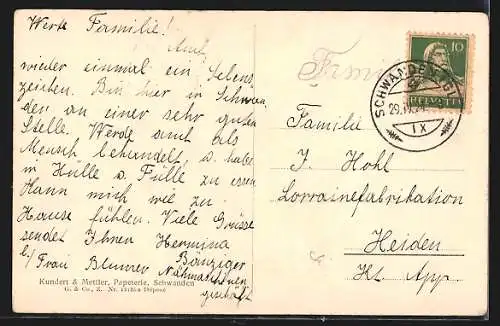 Werte Familie!
Auch
wieder einmal ein Lebens
zeichen. Bin hier in Schwan
den an einer sehr guten
Stelle. Werde auch als
Mensch behandelt, u. habe
in Hülle u Fülle zu essen
Kann mich wie zu
Hause fühlen. Viele Grüsse
sendet Ihnen Hermina
Bänziger
b/ Frau Blumer Nähmaschinen
geschäft
Kundert & Mettler, Papeterie, Schwanden
G. & Co., Z. Nr.
10
HELVETIA
SCHWANDEN (GL.)
29.IV.
IX
Familie
J. Hohl
Lorrainefabrikation
Heiden
Kt. App.